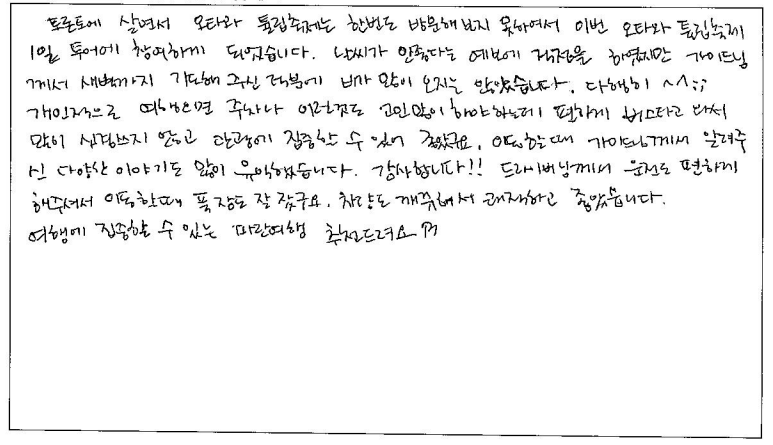 토론토에 살면서 오타와 튤립축제는 한번도 방문해보지 못하여서 이번 오타와 튤립축제
1일 투어에 참여하게 되었습니다. 날씨가 안좋다는 예보에 걱정을 하였지만 가이드님
께서 새벽까지 기도해 주신 덕분에 비가 많이 오지는 않았습니다. 다행히 ^^;;
개인적으로 여행오면 주차나 이런것도 고민많이 해야하는데 편하게 버스타고 와서
많이 신경쓰지 않고 관광에 집중할 수 있어 좋았구요, 이동할때 가이드님께서 알려주
신 다양한 이야기도 많이 유익했습니다. 감사합니다!! 드라이버님께서 운전도 편하게
해주셔서 이동할때 푹 잠도 잘 잤구요. 차량도 깨끗해서 쾌적하고 좋았습니다.
여행에 집중할 수 있는 파란여행 추천드려요